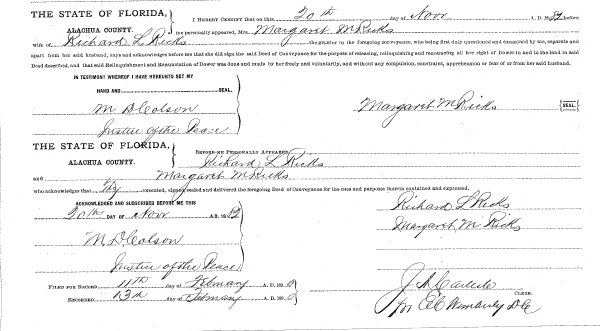 THE STATE OF FLORIDA,
ALACHUA COUNTY.
I HEREBY CERTIFY that on this 20th day of Novr A. D. 18 before
me personally appeared, Mrs. Margaret M Ricks
wife of Richard L Ricks the grantor in the foregoing conveyance, who being first duly questioned and examined by me, separate and
apart from her said husband, says and acknowledges before me that she did sign the said Deed of Conveyance for the purpose of releasing, relinquishing and renouncing all her right of Dower in and to the land in said
Deed described, and that said Relinquishment and Renunciation of Dower was done and made by her freely and voluntarily, and without any compulsion, constraint, apprehension or fear of or from her said husband.
IN TESTIMONY WHEREOF I HAVE HEREUNTO SET MY
HAND AND SEAL,
M D Colson
Justice of the Peace
Margaret M Ricks SEAL
THE STATE OF FLORIDA,
ALACHUA COUNTY.
BEFORE ME PERSONALLY APPEARED
Richard L Ricks
and Margaret M Ricks
who acknowledges that They executed, signed, sealed and delivered the foregoing Deed of Conveyance for the uses and purposes therein contained and expressed.
ACKNOWLEDGED AND SUBSCRIBED BEFORE ME THIS
20th DAY OF Novr A. D. 18
M D Colson
Justice of the Peace
Richard L Ricks
Margaret M Ricks
FILED FOR RECORD 11th day of February A. D. 18
RECORDED 13th day of February A. D. 18
J A Carlisle
CLERK.
pr E C Wimberly D C